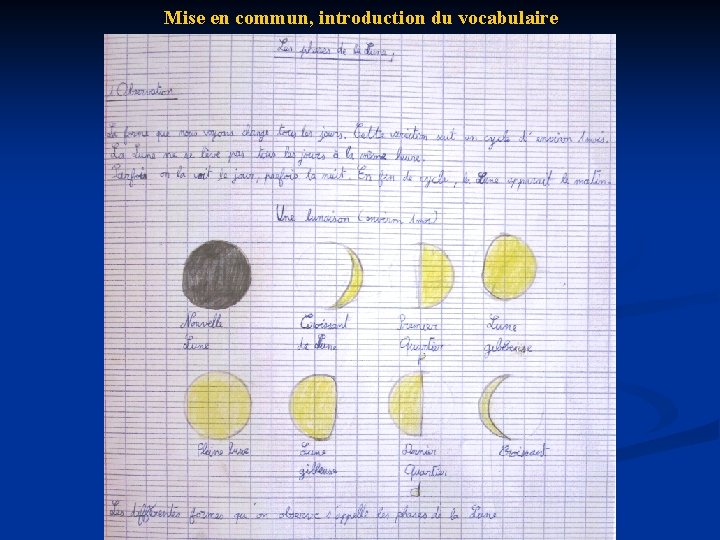 Mise en commun, introduction du vocabulaire
Les phases de la Lune,
1 Observation
La forme que nous voyons change tous les jours. Cette variation suit un cycle d'environ 1 mois.
La Lune ne se lève pas tous les jours à la même heure.
Parfois on la voit de jour, parfois la nuit. En fin de cycle, la Lune apparait le matin.
Une lunaison (environ 1 mois)
Nouvelle Croissant Premier Lune
Lune de Lune Quartier gibbeuse
p
Pleine lune Lune Dernier Croissant
gibbeuse Quartier
d
Les différentes formes qu'on observe s'appelle les phases de la Lune